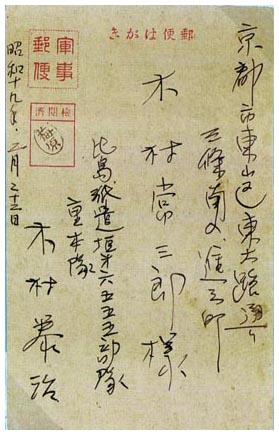 郵便はがき
軍事
郵便
検閲済
京都市東山区東大路通り
三條南入進之町
木村常三郎様
比島派遣垣第六五五五部隊
重本隊
木村泰治
昭和十九年 二月二十三日